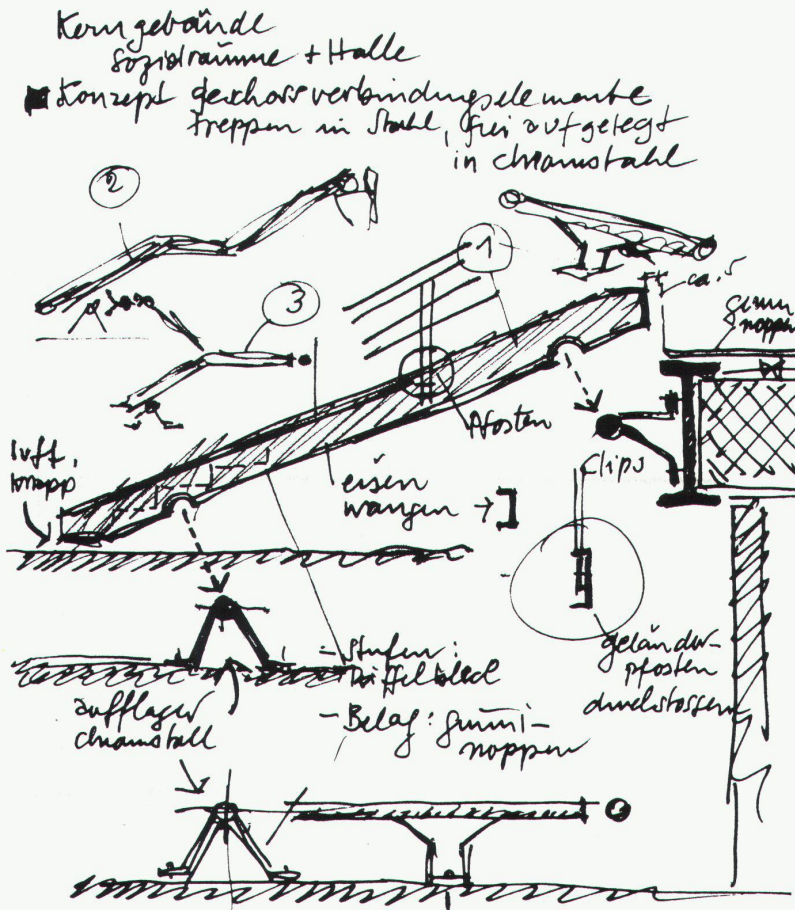 Kerngebäude
Sozialräume + Halle
Konzept geschossverbindungselemente
treppen in Stahl, frei aufgelegt
in chromstahl
2
1
ca. 5
3
gummi
noppen
Pfosten
luft,
knapp
Clips
eisen
wangen
geländer-
pfosten
durchstossen
- Stufen:
Riffelblech
- Belag: gummi-
noppen
aufflager
chromstahl